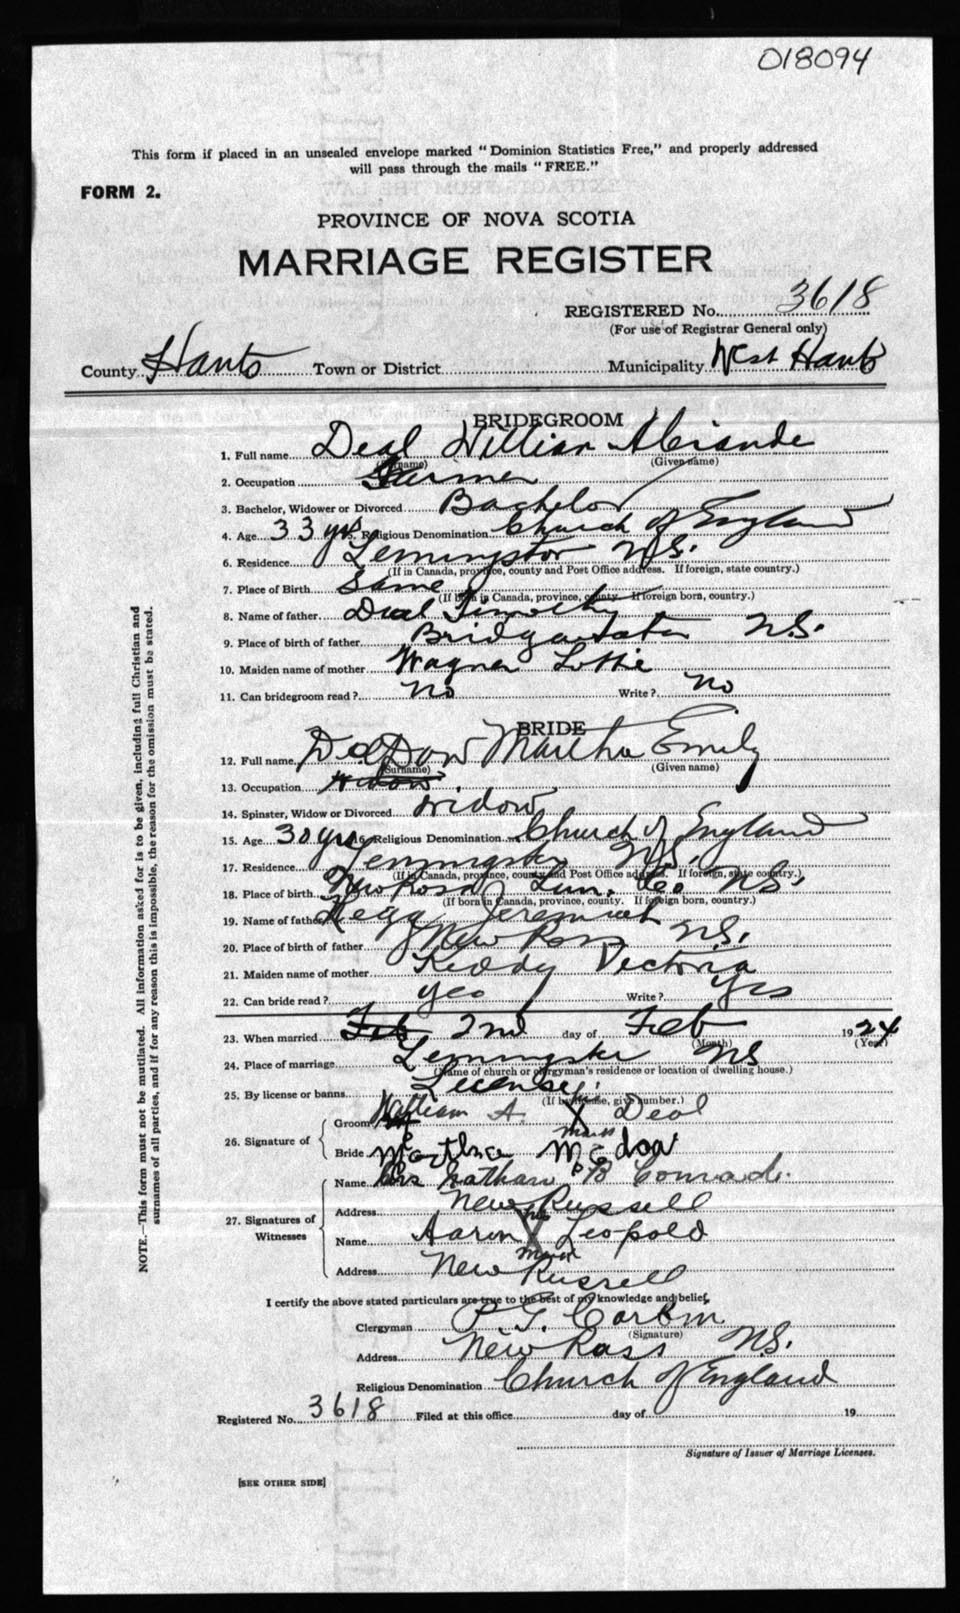 018094
This form if placed in an unsealed envelope marked "Dominion Statistics Free," and properly addressed
will pass through the mails "FREE."
FORM 2.
PROVINCE OF NOVA SCOTIA
MARRIAGE REGISTER
REGISTERED No. 3618
(For use of Registrar General only)
County Hants Town or District Municipality West Hants
BRIDEGROOM
1. Full name Deal William
(Surname) (Given name)
2. Occupation Farmer
3. Bachelor, Widower or Divorced Bachelor
4. Age 33 yrs 5. Religious Denomination Church of England
6. Residence N.S.
(If in Canada, province, county and Post Office address. If foreign, state country.)
7. Place of Birth Same
(If born in Canada, province, county. If foreign born, country.)
8. Name of father Deal Timothy
9. Place of birth of father N.S.
10. Maiden name of mother Wagner Lottie
11. Can bridegroom read? No Write? No
BRIDE
12. Full name Dow Martha Emily
(Surname) (Given name)
13. Occupation Widow
14. Spinster, Widow or Divorced Widow
15. Age 30 yrs 16. Religious Denomination Church of England
17. Residence N.S.
(If in Canada, province, county and Post Office address. If foreign, state country.)
18. Place of birth New Ross Lun. Co N.S.
(If born in Canada, province, county. If foreign born, country.)
19. Name of father Jeremiah
20. Place of birth of father New Ross N.S.
21. Maiden name of mother Keddy Victoria
22. Can bride read? yes Write? yes
23. When married Feb 2nd day of Feb 1924
(Month) (Year)
24. Place of marriage NS
(Name of church or clergyman's residence or location of dwelling house.)
25. By license or banns License
(If by license, give number.)
26. Signature of
Groom William A. X Deal
mark
Bride
27. Signatures of Witnesses
Name Nathan B Conrad.
Address New Russell
Name Aaron X Leopold
his
mark
Address New Russell
I certify the above stated particulars are true to the best of my knowledge and belief,
Clergyman P. G. Corbin
(Signature)
Address New Ross N.S.
Religious Denomination Church of England
Registered No. 3618 Filed at this office day of 19
Signature of Issuer of Marriage Licenses.
[SEE OTHER SIDE]
NOTE.—This form must not be mutilated. All information asked for is to be given, including full Christian and
surnames of all parties, and if for any reason this is impossible, the reason for the omission must be stated.